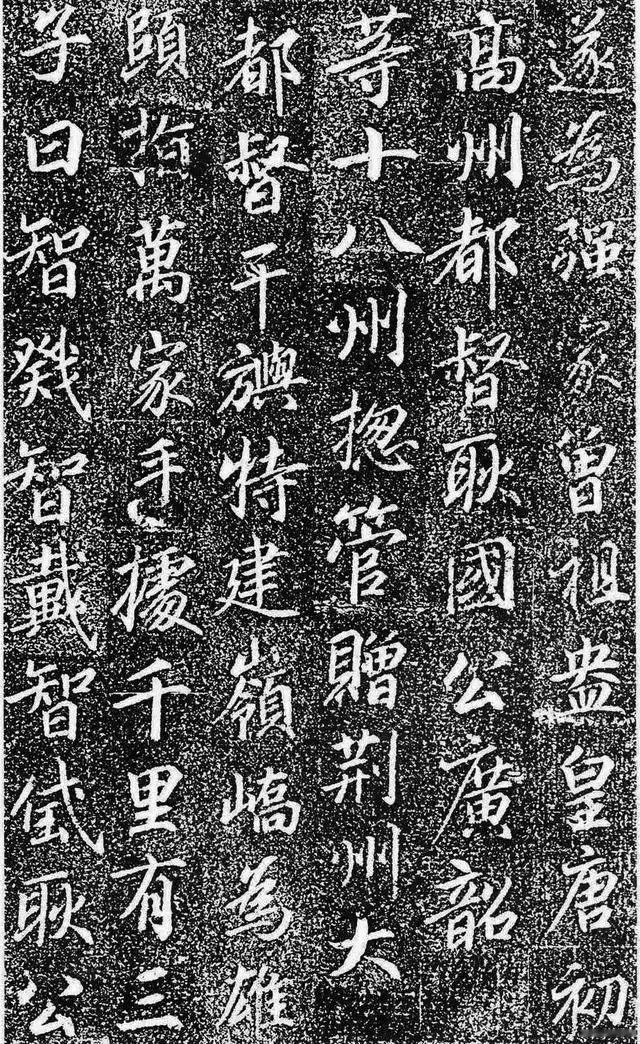 遂為强家曾祖盎皇唐初
高州都督耿國公廣韶
等十八州揔管贈荆州大
都督平𣄃特建嶺嶠為雄
頤指萬家手據千里有三
子曰智戣智戴智㦯耿公